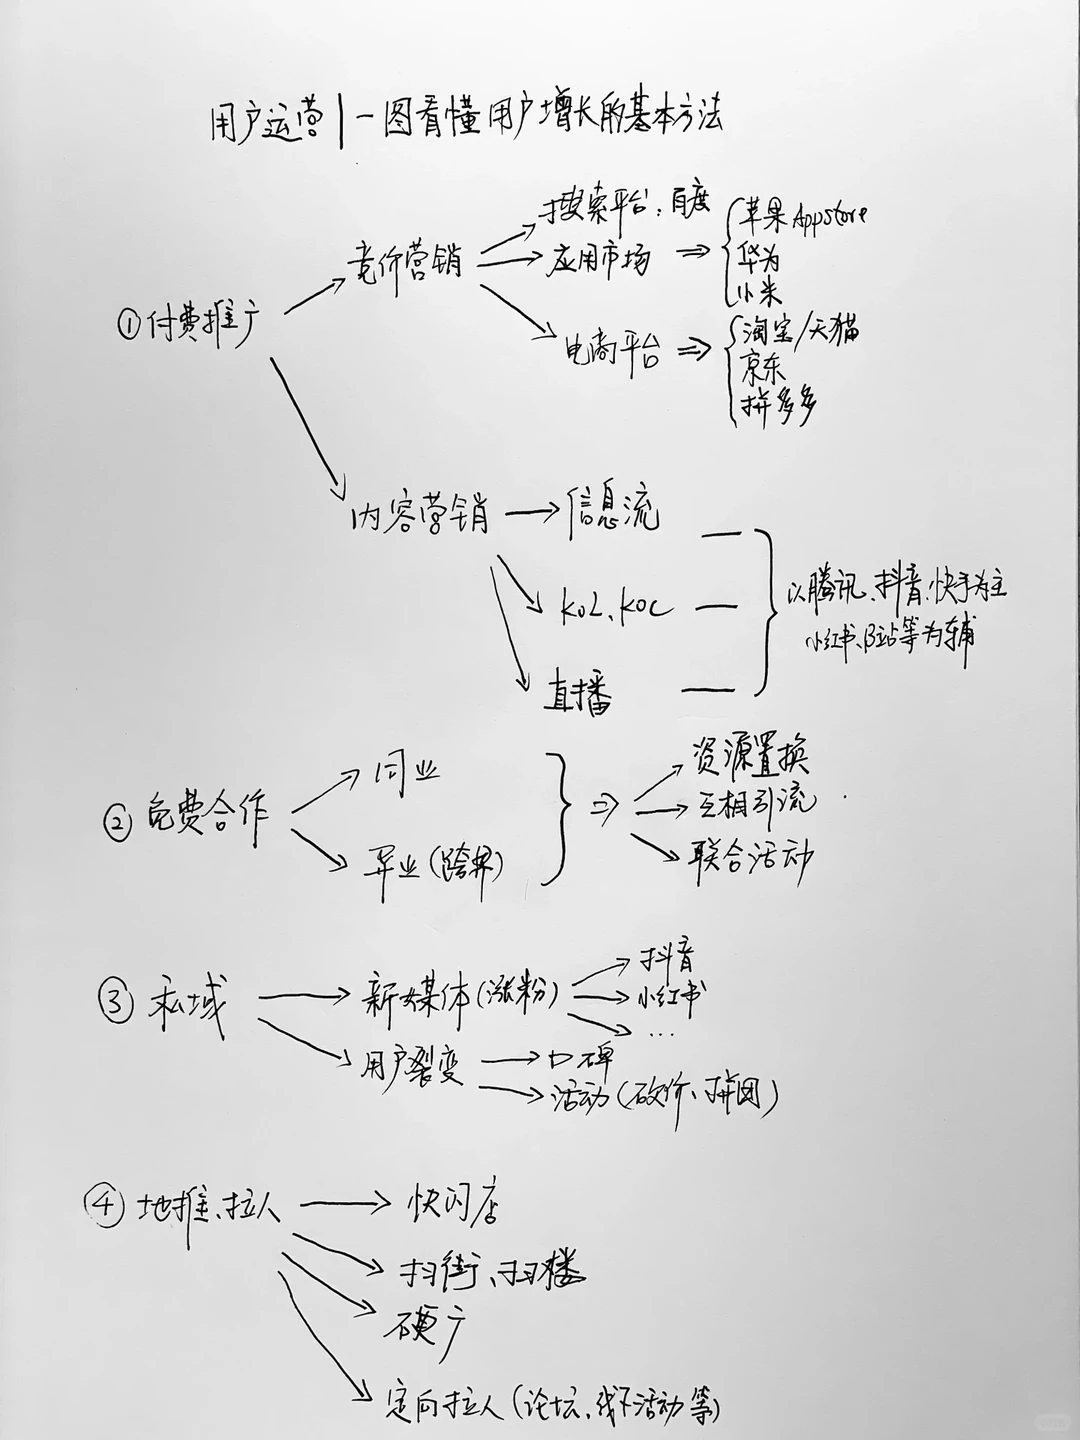 用户运营|一图看懂用户增长的基本方法
①付费推广
竞价营销
搜索平台：百度
应用市场
苹果AppStore
华为
小米
电商平台
淘宝/天猫
京东
拼多多
内容营销
信息流
KOL、KOC
直播
以腾讯、抖音、快手为主
小红书、B站等为辅
②免费合作
同业
异业(跨界)
资源置换
互相引流
联合活动
③私域
新媒体(涨粉)
抖音
小红书
...
用户裂变
口碑
活动(砍价、拼团)
④地推、拉人
快闪店
扫街、扫楼
硬广
定向拉人(论坛、线下活动等)